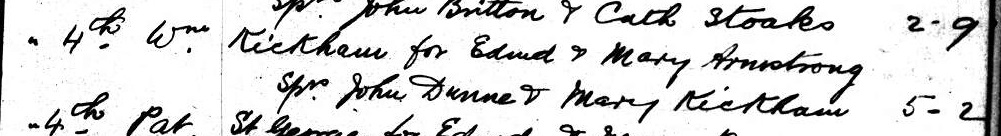 Sprs John Britton & Cath Stoaks 2-9
" 4th Wm Kickham for Edmd & Mary Armstrong
Sprs John Dunne & Mary Kickham 5-2
" 4th Pat St George for Ed